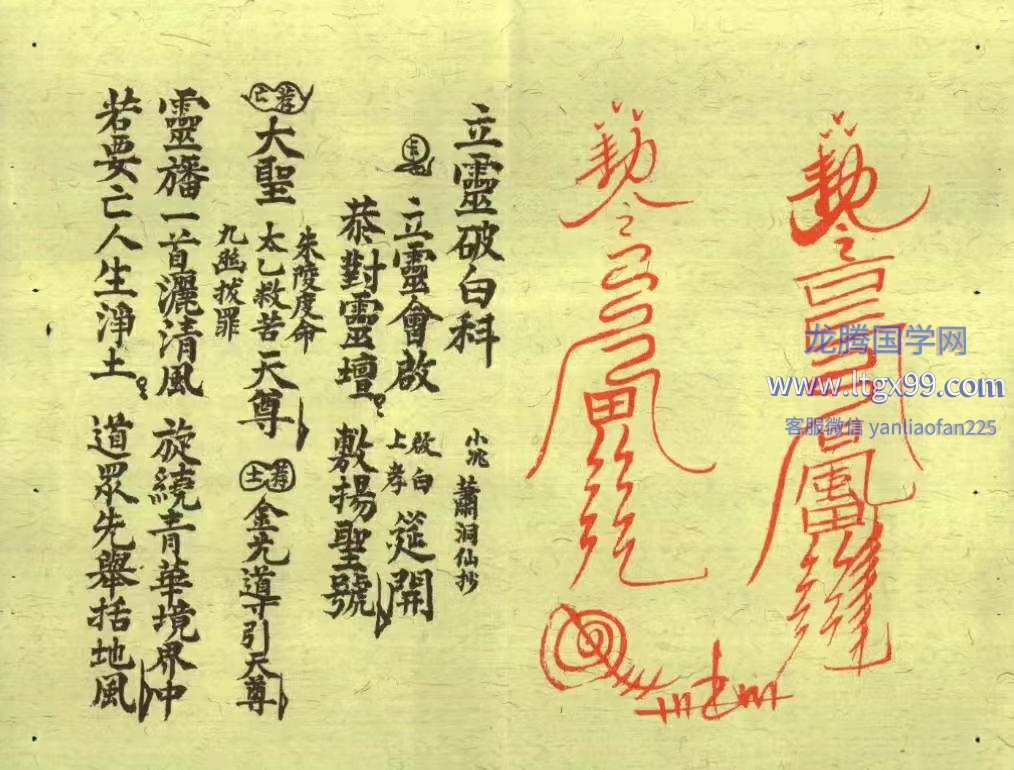 勅令
勅令
龙腾国学网
www.ltgx99.com
客服微信 yanliaofan225
立靈破白科
小兆 蕭洞仙抄
立靈會啟 啟白上孝 筵開
恭對靈壇 敷揚聖號
薦亡 大聖 朱陵度命 太乙救苦 九幽拔罪 天尊 薦士 金光導引天尊
靈旛一首灑清風 旋繞青華境界中
若要亡人生淨土 道眾先舉括地風